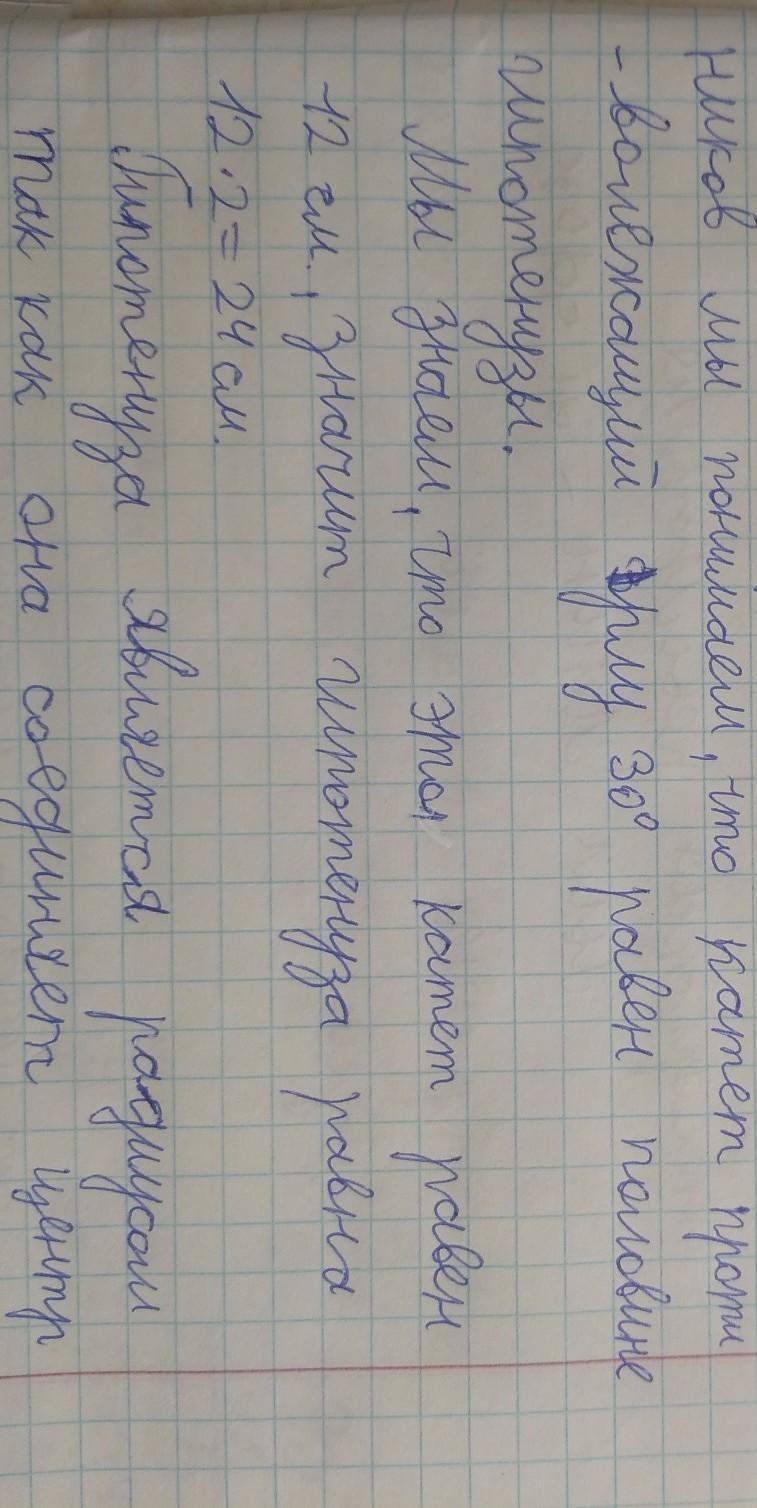 ников мы понимаем, что катет проти
-волежащий углу 30° равен половине
гипотенузы.
Мы знаем, что этот катет равен
12 см., значит гипотенуза равна
12 · 2 = 24 см.
Гипотенуза является радиусом
так как она соединяет центр